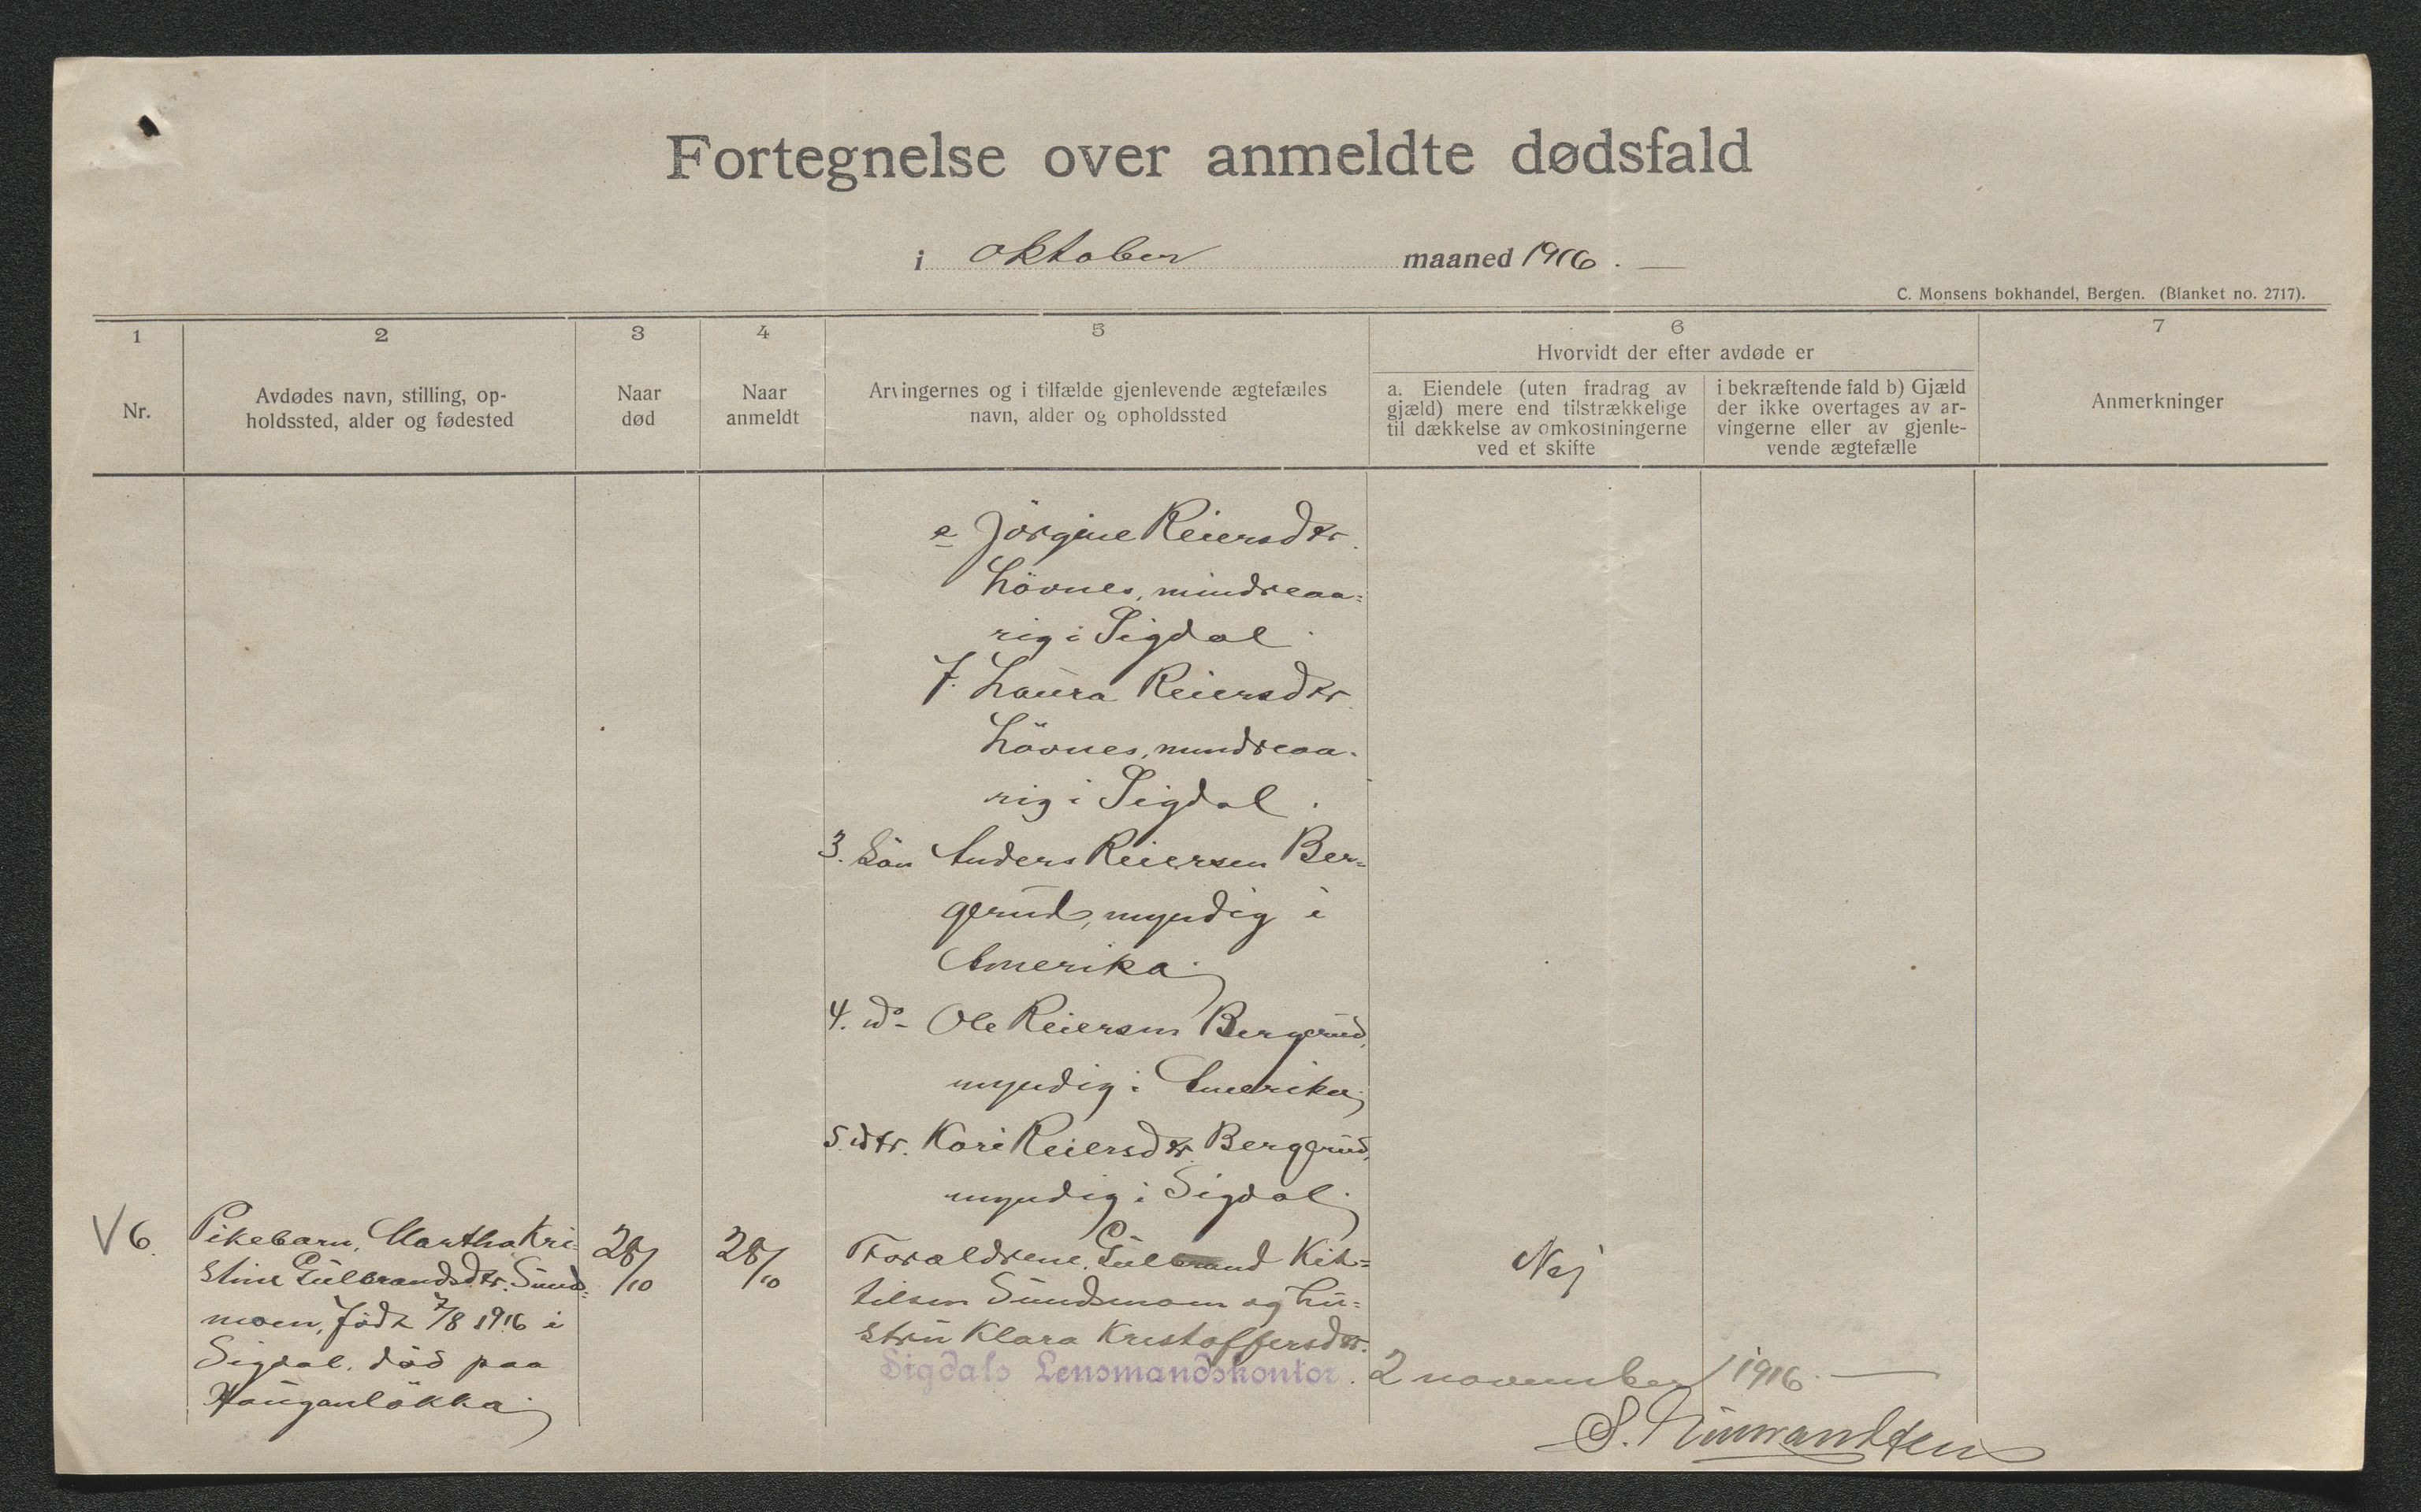 Fortegnelse over anmeldte dødsfald
i oktober maaned 1916. —
C. Monsens bokhandel, Bergen. (Blanket no. 2717).
1 2 3 4 5 6 7
Hvorvidt der efter avdøde er
Nr.
Avdødes navn, stilling, op-
holdssted, alder og fødested
Naar
død
Naar
anmeldt
Arvingernes og i tilfælde gjenlevende ægtefælles
navn, alder og opholdssted
a. Eiendele (uten fradrag av
gjæld) mere end tilstrækkelige
til dækkelse av omkostningerne
ved et skifte
i bekræftende fald b) Gjæld
der ikke overtages av ar-
vingerne eller av gjenle-
vende ægtefælle
Anmerkninger
e Jörgine Reiersdtr.
Lövnes, mindreaa=
rig i Sigdal.
f. Laura Reiersdtr.
Lövnes, mindreaa-
rig i Sigdal.
3. Sön Anders Reiersen Ber=
gerud, myndig i
Amerika;
4. do- Ole Reiersen Bergerud,
myndig i Amerika;
5. dtr. Kari Reiersdtr. Bergerud,
myndig i Sigdal;
V 6.
Pikebarn, Martha Kri=
stine Gulbrandsdtr. Sund=
moen, född 7/8 1916 i
Sigdal, död paa
Hauganlökka;
28/10
28/10
Forældrene, Gulbrand Kit=
tilsen Sundmoen og hu=
stru Klara Kristoffersdtr.
Nej
Sigdals Lensmandskontor. 2 november 1916. —